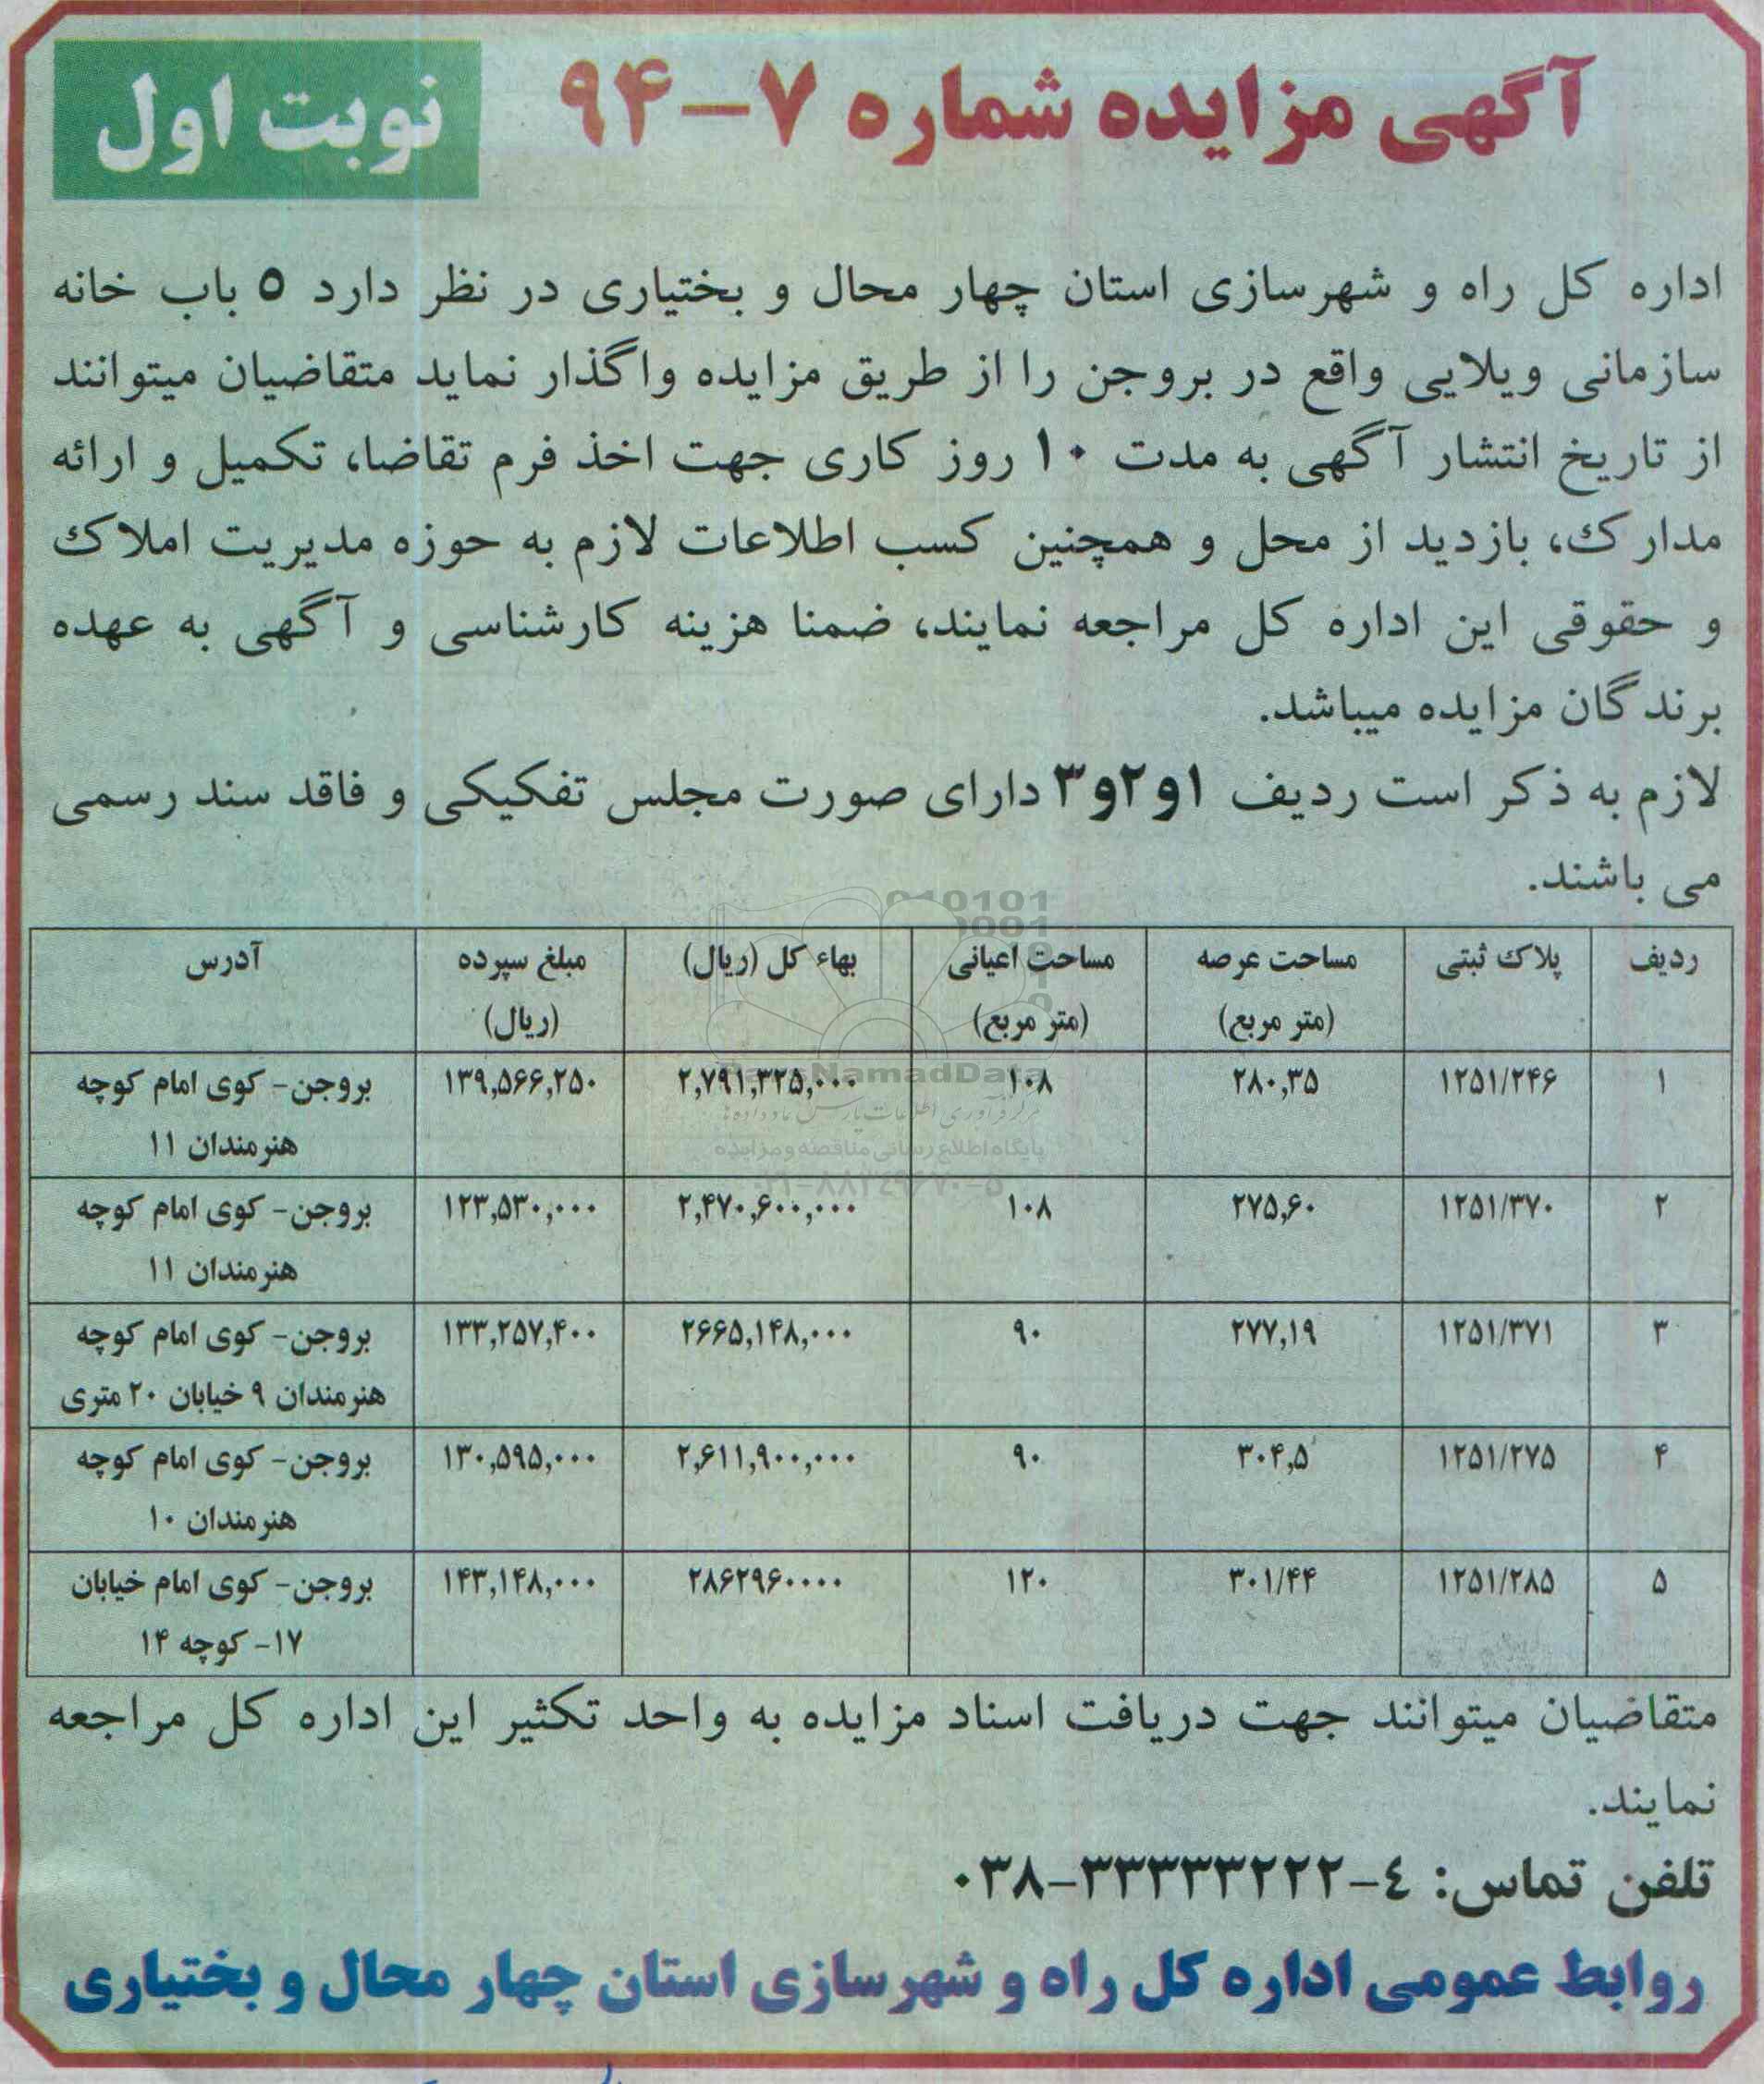 آگهی مزایده شماره ۷-۹۴
نوبت اول
اداره کل راه و شهرسازی استان چهار محال و بختیاری در نظر دارد ۵ باب خانه
سازمانی ویلایی واقع در بروجن را از طریق مزایده واگذار نماید متقاضیان میتوانند
از تاریخ انتشار آگهی به مدت ۱۰ روز کاری جهت اخذ فرم تقاضا، تکمیل و ارائه
مدارک، بازدید از محل و همچنین کسب اطلاعات لازم به حوزه مدیریت املاک
و حقوقی این اداره کل مراجعه نمایند، ضمنا هزینه کارشناسی و آگهی به عهده
برندگان مزایده میباشد.
لازم به ذکر است ردیف ۱و۲و۳ دارای صورت مجلس تفکیکی و فاقد سند رسمی
می باشند.
ردیف پلاک ثبتی مساحت عرصه (متر مربع) مساحت اعیانی (متر مربع) بهاء کل (ریال) مبلغ سپرده (ریال) آدرس
۱ ۱۲۵۱/۲۴۶ ۲۸۰,۳۵ ۱۰۸ ۲,۷۹۱,۳۲۵,۰۰۰ ۱۳۹,۵۶۶,۲۵۰ بروجن- کوی امام کوچه
هنرمندان ۱۱
۲ ۱۲۵۱/۳۷۰ ۲۷۵,۶۰ ۱۰۸ ۲,۴۷۰,۶۰۰,۰۰۰ ۱۲۳,۵۳۰,۰۰۰ بروجن- کوی امام کوچه
هنرمندان ۱۱
۳ ۱۲۵۱/۳۷۱ ۲۷۷,۱۹ ۹۰ ۲۶۶۵,۱۴۸,۰۰۰ ۱۳۳,۲۵۷,۴۰۰ بروجن- کوی امام کوچه
هنرمندان ۹ خیابان ۲۰ متری
۴ ۱۲۵۱/۲۷۵ ۳۰۴,۵ ۹۰ ۲,۶۱۱,۹۰۰,۰۰۰ ۱۳۰,۵۹۵,۰۰۰ بروجن- کوی امام کوچه
هنرمندان ۱۰
۵ ۱۲۵۱/۲۸۵ ۳۰۱/۴۴ ۱۲۰ ۲۸۶۲۹۶۰۰۰۰ ۱۴۳,۱۴۸,۰۰۰ بروجن- کوی امام خیابان
۱۷- کوچه ۱۴
متقاضیان میتوانند جهت دریافت اسناد مزایده به واحد تکثیر این اداره کل مراجعه
نمایند.
تلفن تماس: ٤-۰۳۸-۳۳۳۳۳۲۲۲
روابط عمومی اداره کل راه و شهرسازی استان چهار محال و بختیاری